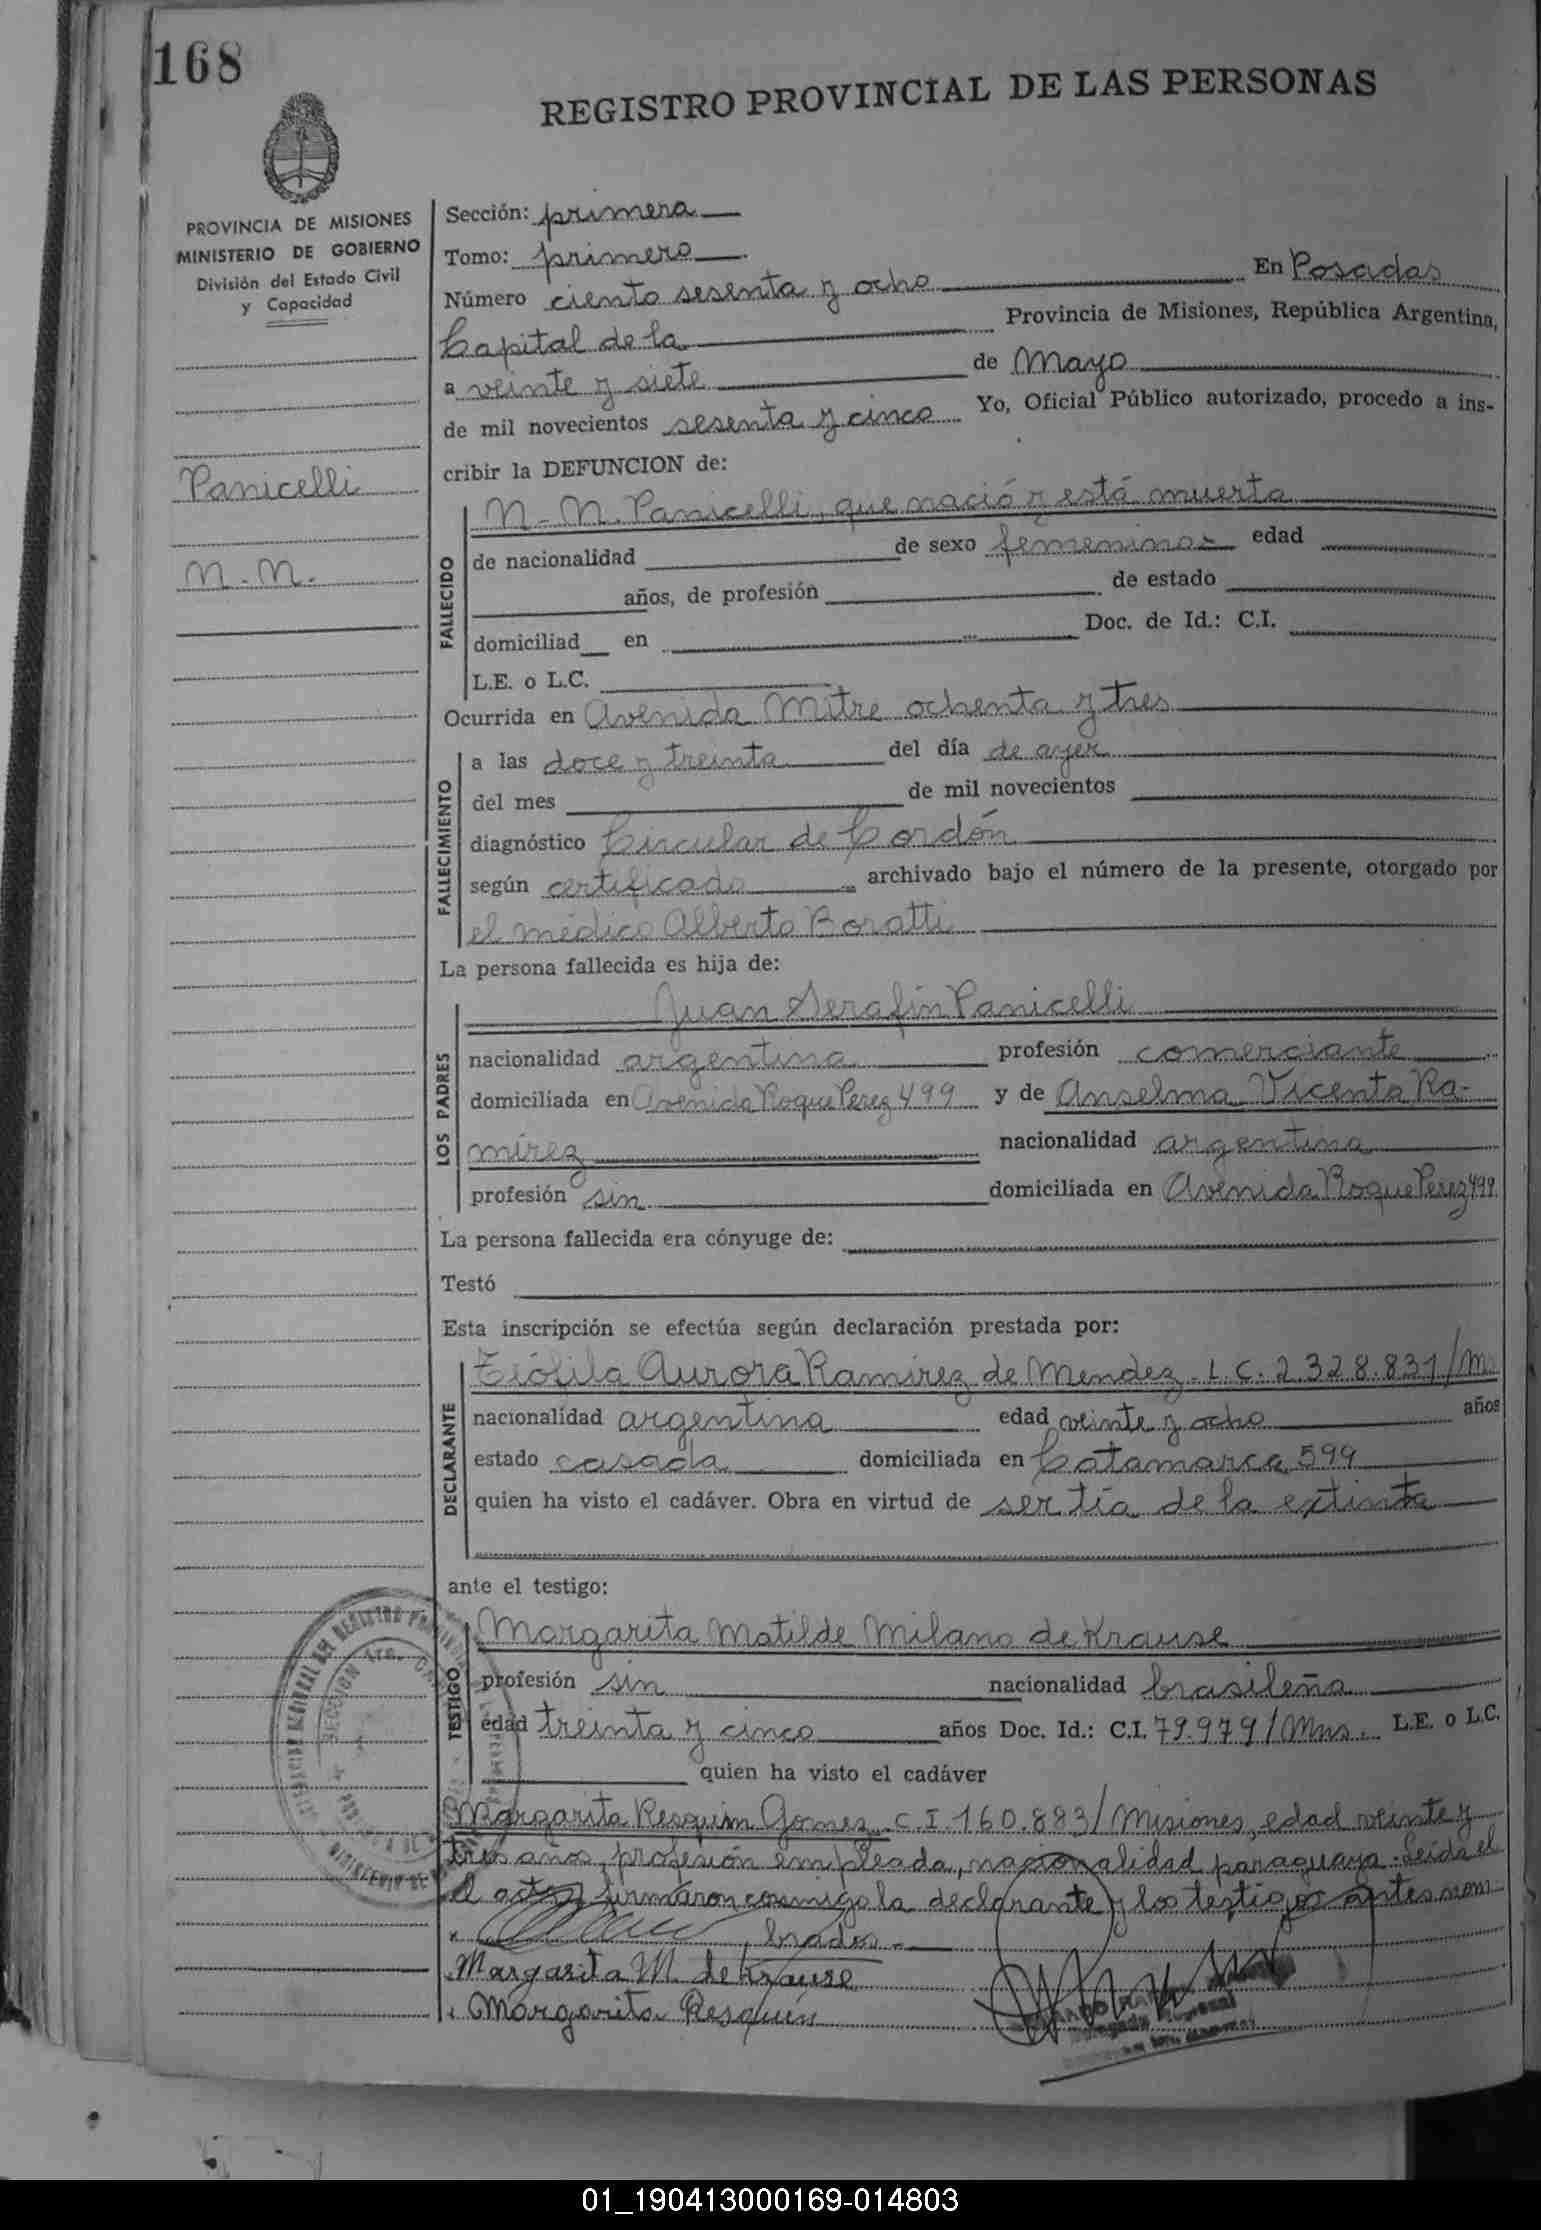 168
REGISTRO PROVINCIAL DE LAS PERSONAS
PROVINCIA DE MISIONES
MINISTERIO DE GOBIERNO
División del Estado Civil
y Capacidad
Panicelli
N. N.
Sección: primera
Tomo: primero
Número ciento sesenta y ocho En Posadas
Capital de la Provincia de Misiones, República Argentina,
a veinte y siete de Mayo
de mil novecientos sesenta y cinco Yo, Oficial Público autorizado, procedo a ins-
cribir la DEFUNCION de:
FALLECIDO
N-N. Panicelli, que nació y está muerta
de nacionalidad de sexo femenino edad
años, de profesión de estado
domiciliad en Doc. de Id.: C.I.
L.E. o L.C.
Ocurrida en Avenida Mitre ochenta y tres
FALLECIMIENTO
a las doce y treinta del día de ayer
del mes de mil novecientos
diagnóstico Circular de Cordón
según certificado archivado bajo el número de la presente, otorgado por
el médico Alberto Boratti
La persona fallecida es hija de:
LOS PADRES
Juan Serafín Panicelli
nacionalidad argentina profesión comerciante
domiciliada en Avenida Roque Perez 499 y de Anselma Vicenta Ra-
mírez nacionalidad argentina
profesión sin domiciliada en Avenida Roque Perez 499
La persona fallecida era cónyuge de:
Testó
Esta inscripción se efectúa según declaración prestada por:
DECLARANTE
Teófila Aurora Ramírez de Mendez. L.C. 2.328.831/Ms
nacionalidad argentina edad veinte y ocho años
estado casada domiciliada en Catamarca 599
quien ha visto el cadáver. Obra en virtud de ser tía de la extinta
ante el testigo:
TESTIGO
Margarita Matilde Milano de Krause
profesión sin nacionalidad brasileña
edad treinta y cinco años Doc. Id.: C.I. 79.979/Mns. L.E. o L.C.
quien ha visto el cadáver
Margarita Resquin Gomez. C.I. 160.883/Misiones, edad veinte y
tres años, profesión empleada, nacionalidad paraguaya. Leída el
el acta, firmaron conmigo la declarante y los testigos antes nom-
brados.-
Margarita M. de Krause
Margarita Resquín
01_190413000169-014803